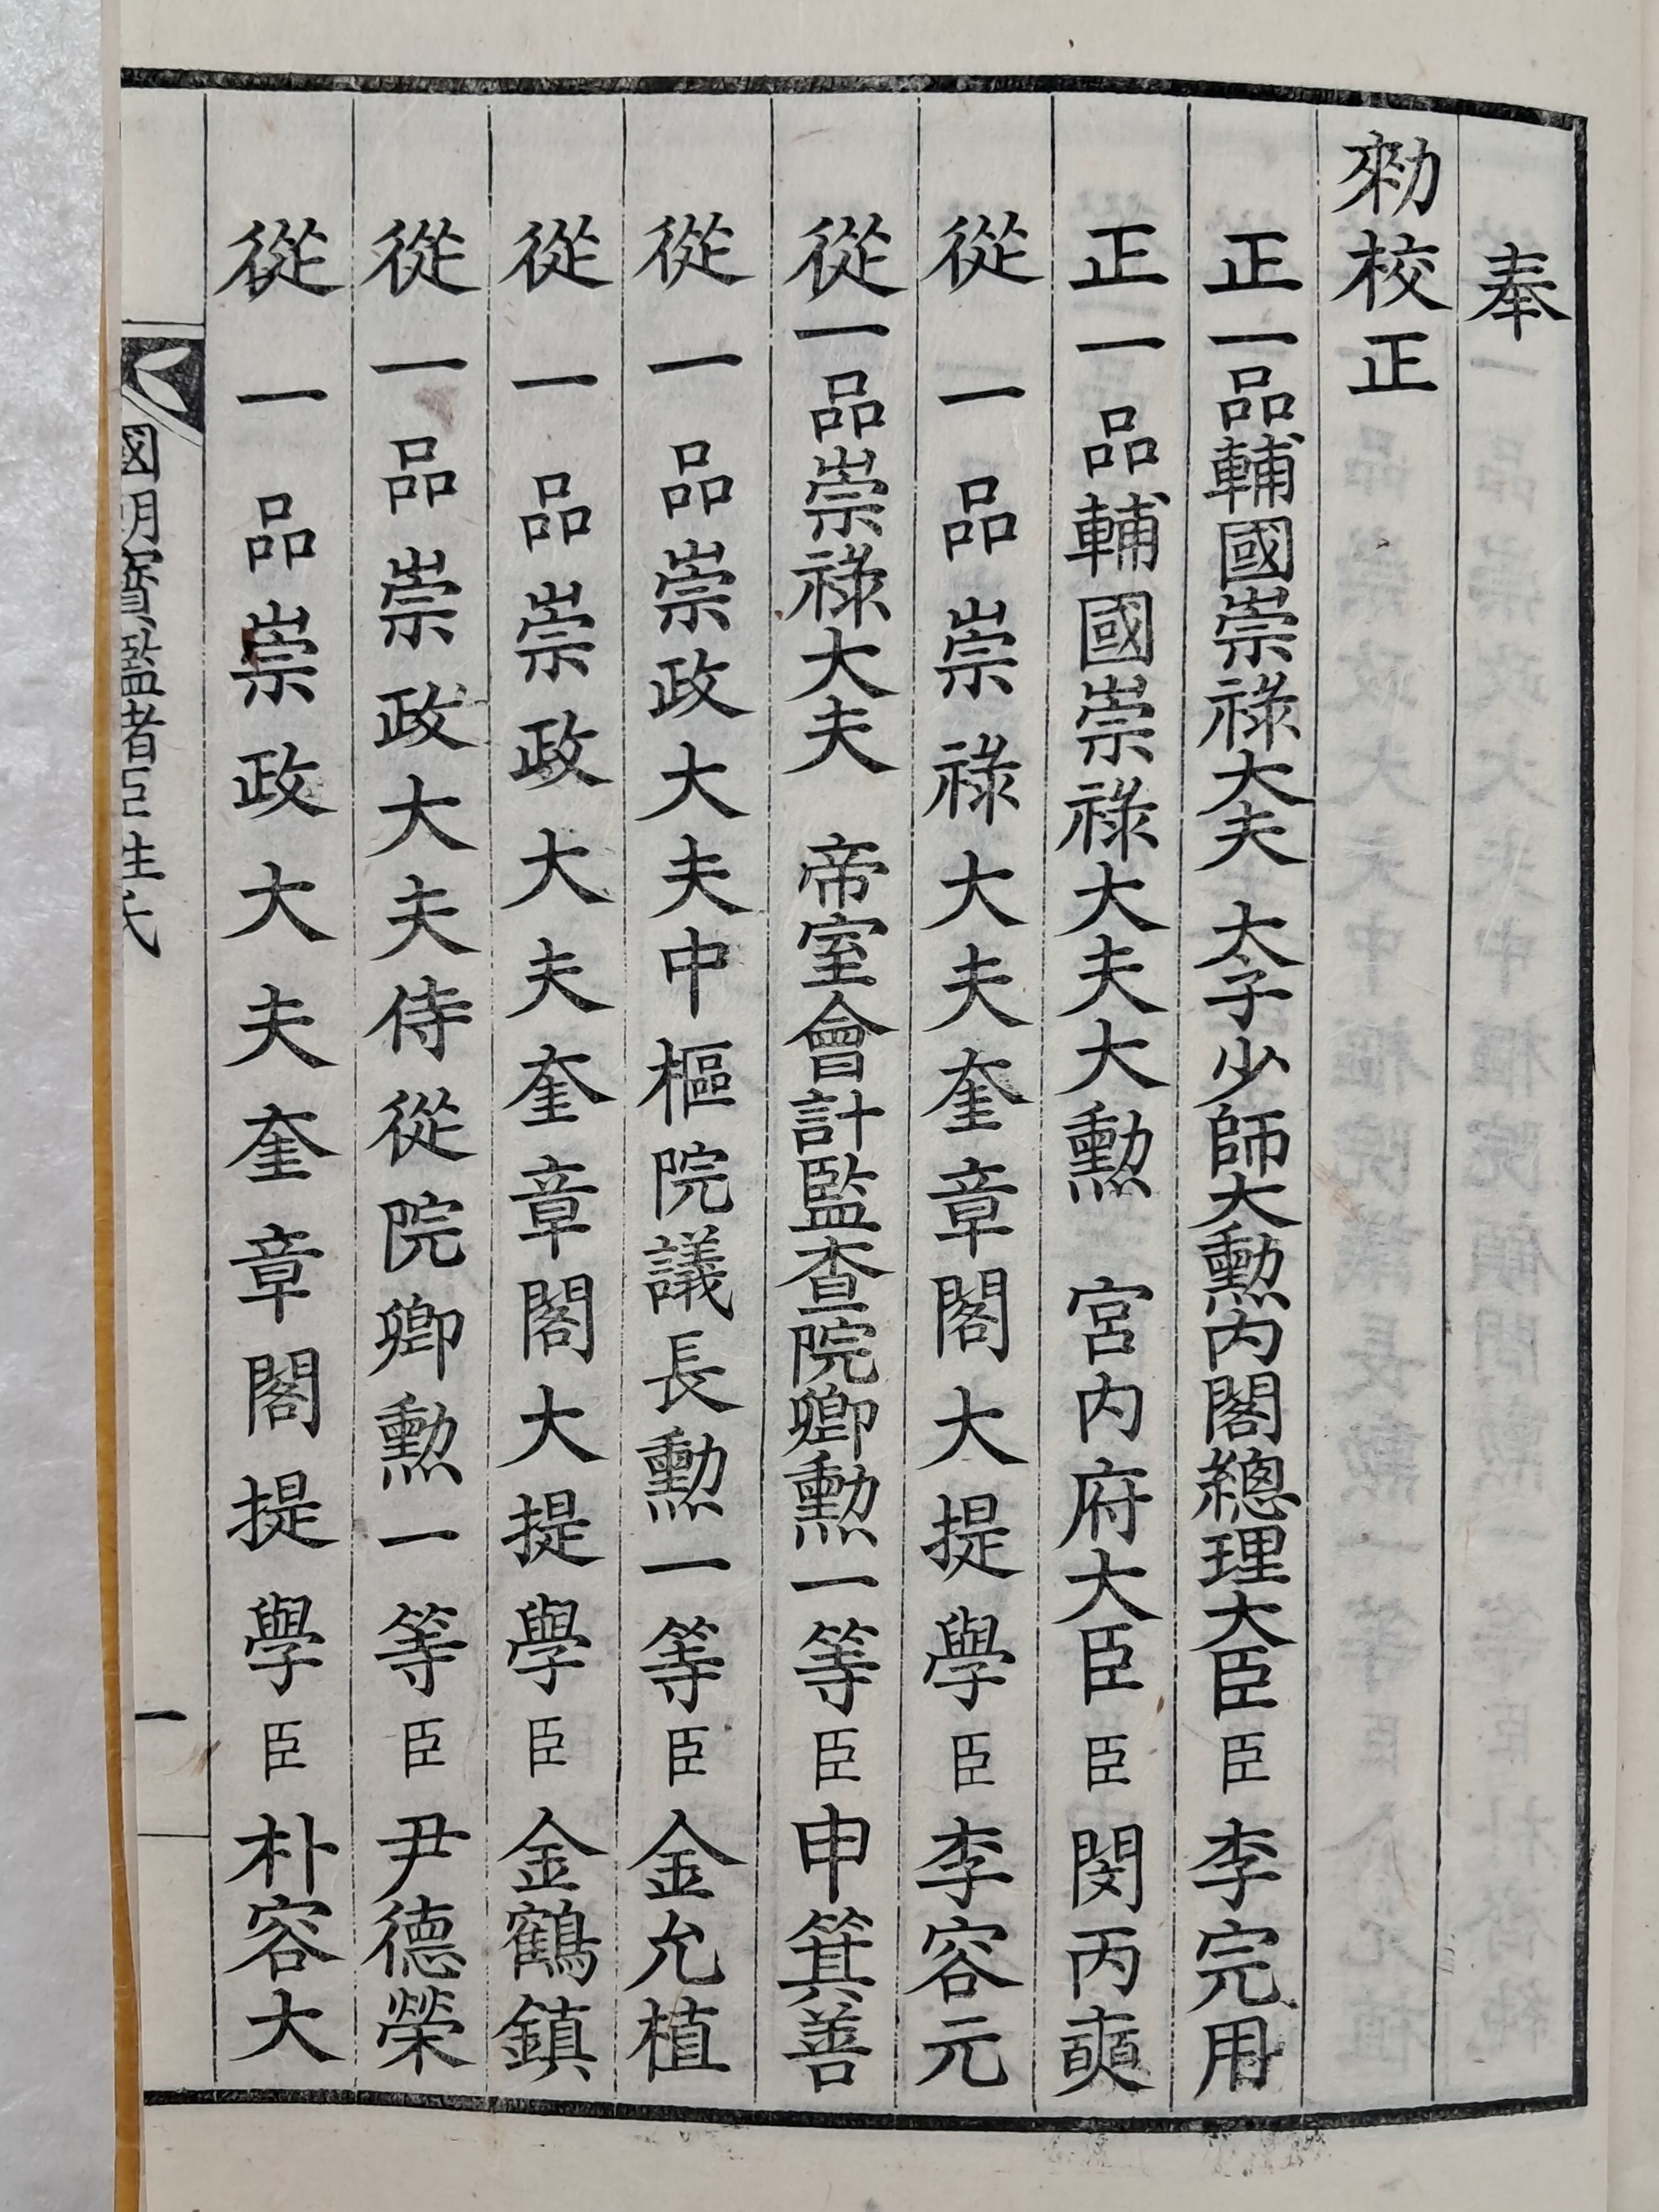 奉
勑校正
正一品輔國崇祿大夫 太子少師大勳內閣總理大臣臣李完用
正一品輔國崇祿大夫大勳 宮內府大臣臣閔丙奭
從一品崇祿大夫奎章閣大提學臣李容元
從一品崇祿大夫 帝室會計監查院卿勳一等臣申箕善
從一品崇政大夫中樞院議長勳一等臣金允植
從一品崇政大夫奎章閣大提學臣金鶴鎮
從一品崇政大夫侍從院卿勳一等臣尹德榮
從一品崇政大夫奎章閣提學臣朴容大
國朝寶鑑校正諸臣姓氏 一